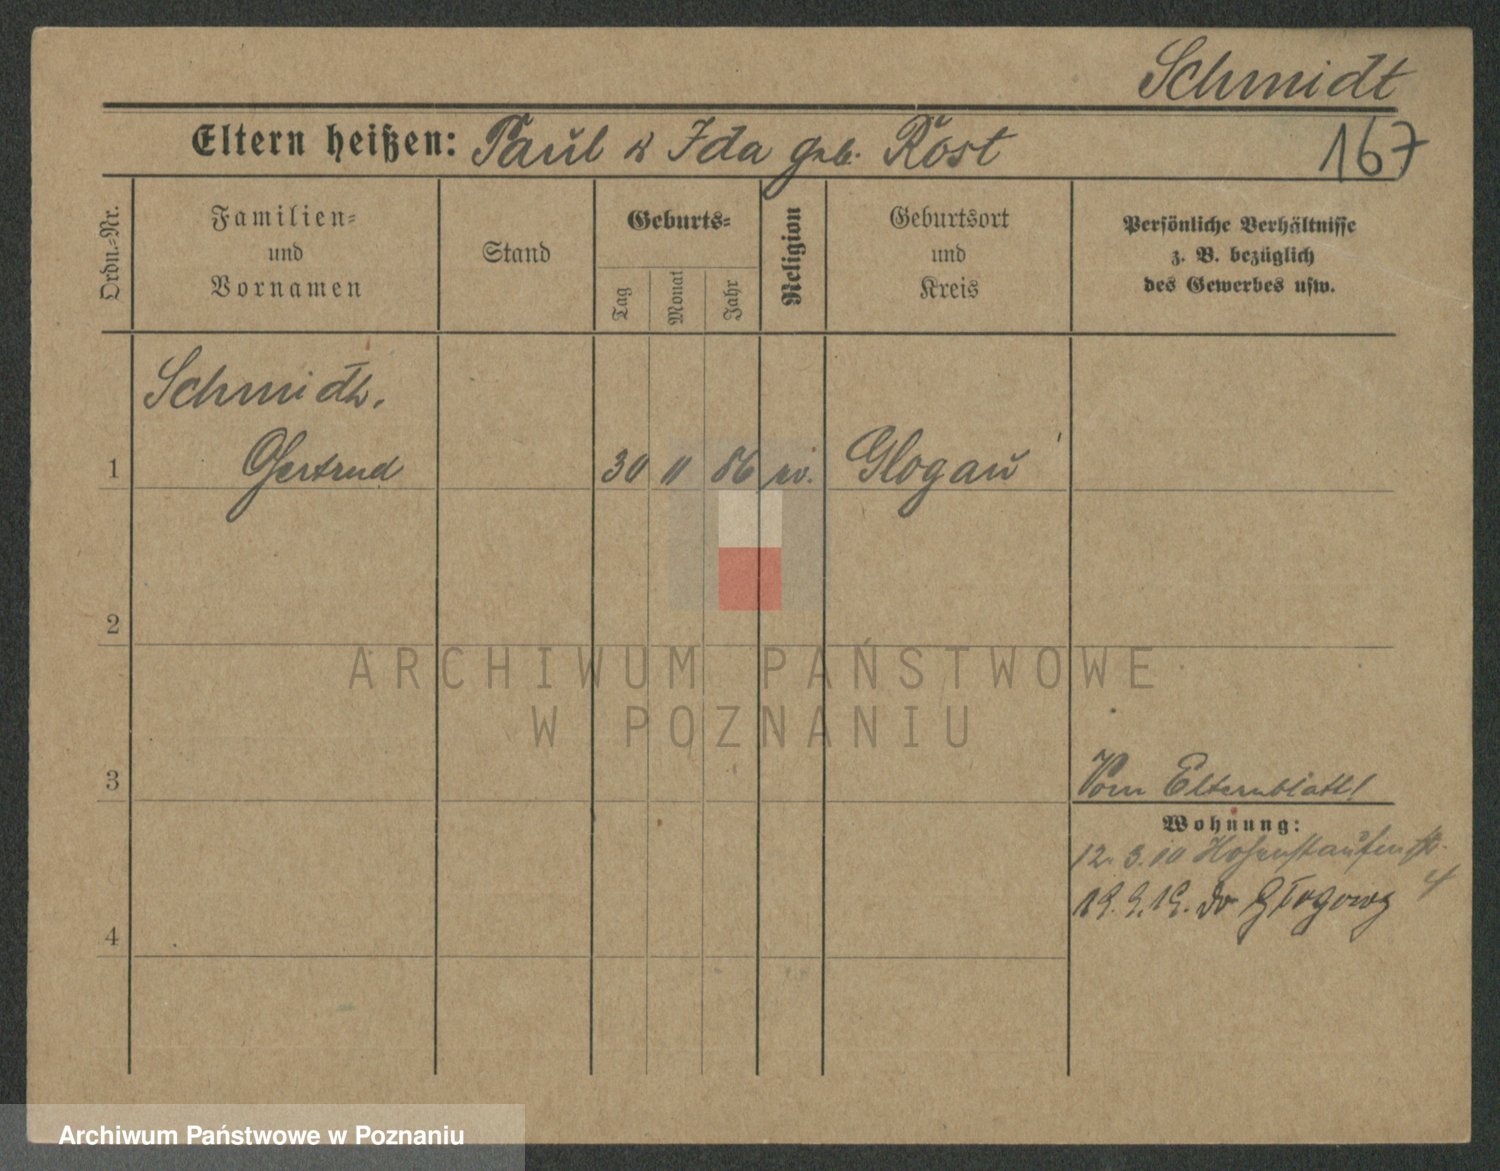 Schmidt
Eltern heißen: Paul u Ida geb. Rost
167
Ordn.-Nr.
Familien-
und
Vornamen
Stand
Geburts-
Tag
Monat
Jahr
Religion
Geburtsort
und
Kreis
Persönliche Verhältnisse
z. B. bezüglich
des Gewerbes usw.
Schmidt,
1 Gertrud 30 11 86 ev. Glogau
2
ARCHIWUM PAŃSTWOWE
W POZNANIU
3
Vom Elternblatt!
Wohnung:
12. 3. 10 Hohenstaufenstr.
4
19. 9. 19. do Głogowy
4
Archiwum Państwowe w Poznaniu